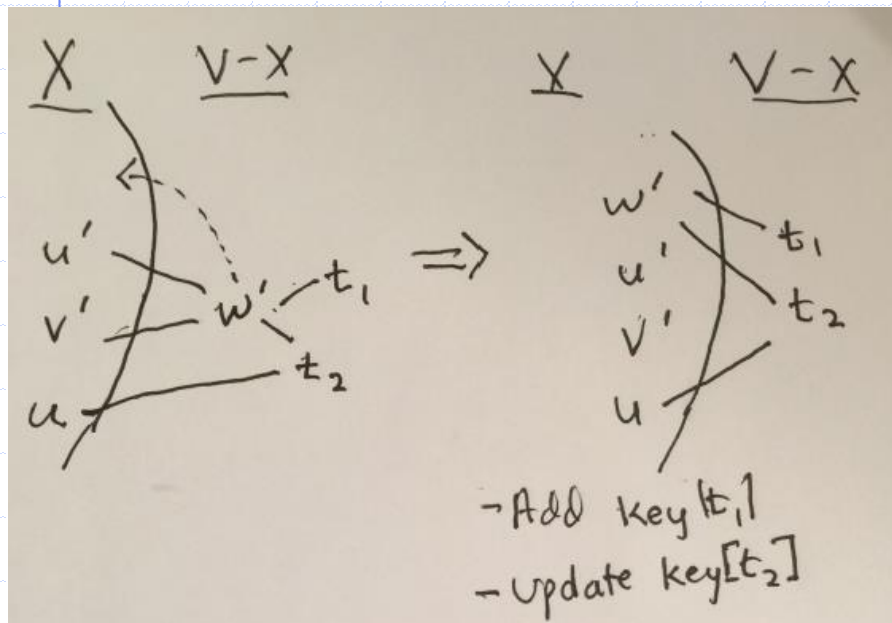 X V-X
u'
v'
u
w'
t₁
t₂
⇒
X V-X
w'
u'
v'
u
t₁
t₂
- Add key[t₁]
- Update key[t₂]